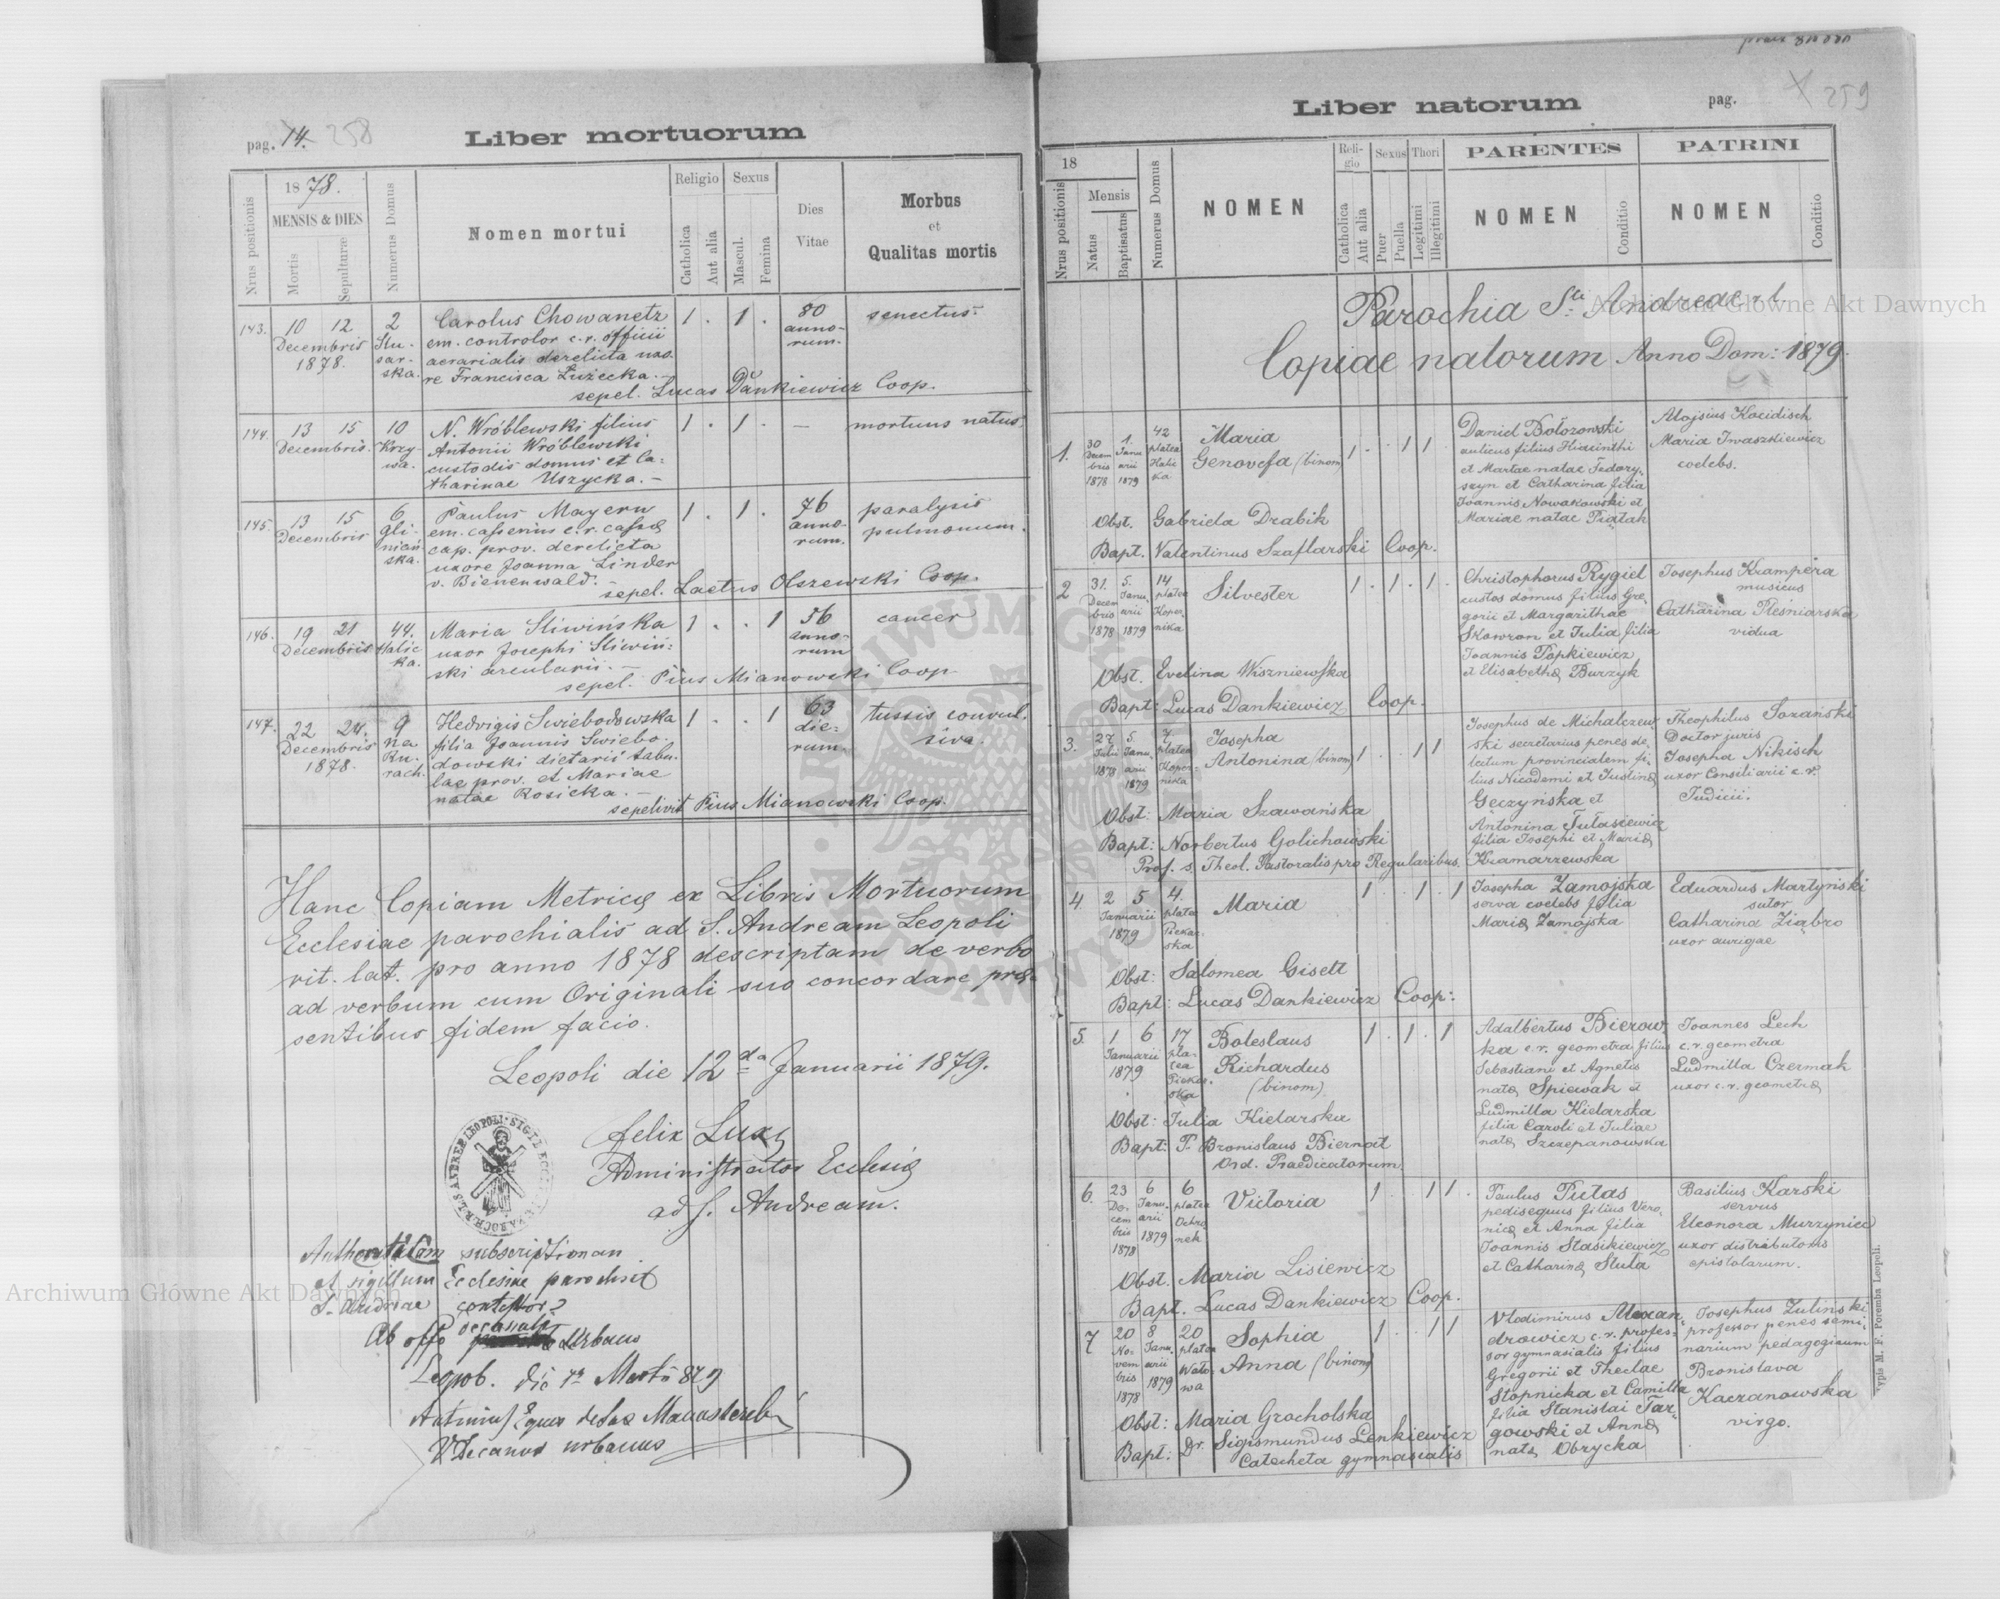 pag. 14. 258
Liber mortuorum
Nrus positionis
18 78.
MENSIS & DIES
Mortis
Sepulturæ
Numerus Domus
Nomen mortui
Religio
Catholica
Aut alia
Sexus
Mascul.
Femina
Dies
Vitae
Morbus
et
Qualitas mortis
143. 10 12 2 Carolus Chowanetz 1 . 1 . 80 senectus.
Decembris Stu- em. controlor c. r. officii anno-
1878. sar- aerarialis derelicta uxo- rum.
ska. re Francisca Łużecka. —
sepel. Lucas Dankiewicz Coop.
144. 13 15 10 N. Wróblewski filius 1 . 1 . — mortuus natus.
Decembris. Krzy- Antonii Wróblewski
wa. custodis domus et Ca-
tharinae Uszycka. —
145. 13 15 6 Paulus Mayern 1 . 1 . 76 paralysis
Decembris Gli- em. cassenius c. r. cassæ anno- pulmonum.
niań- cap. prov. derelicta rum.
ska. uxore Joanna Linder
v. Bienenwald. —
sepel. Laetus Olszewski Coop.
146. 19 21 44. Maria Sliwińska 1 . . 1 56 cancer
Decembris Halic- uxor Josephi Sliwiń- anno-
ka. ski arcularii. — rum
sepel. Pius Mianowski Coop
147. 22 24. 9 Hedvigis Swiebodowska 1 . . 1 63 tussis convul-
Decembris na filia Joannis Swiebo- die- siva.
1878. Ru- dowski dietarii tabu- rum.
rach. lae prov. et Mariae
natae Rosicka. —
sepelivit Pius Mianowski Coop.
Hanc Copiam Metricæ ex Libris Mortuorum
Ecclesiae parochialis ad S. Andream Leopoli
rit. lat. pro anno 1878 descriptam de verbo
ad verbum cum Originali suo concordare præ-
sentibus fidem facio.
Leopoli die 12da Januarii 1879.
Felix
Administrator Ecclesiæ
ad S. Andream.
subscriptionem
et sigillum Ecclesiae paroch
S. Andreae contestor
Ab offo decanali Urbano
Leopol. die Martii 879
V Decanus urbanus
Liber natorum
pag. 259
Nrus positionis
18
Mensis
Natus
Baptisatus
Numerus Domus
NOMEN
Reli-
gio
Catholica
Aut alia
Sexus
Puer
Puella
Thori
Legitimi
Illegitimi
PARENTES
NOMEN
Conditio
PATRINI
NOMEN
Conditio
Parochia Sti Andreae r. l.
Copiae natorum Anno Dom: 1879.
1. 30 Decembris 1878 1. Januarii 1879 42 platea Halicka Maria
Genovefa (binom) 1 . . 1 1
Daniel Bołozowski
aulicus filius Hiacinthi
et Martae natae Fedory-
szyn et Catharina filia
Joannis Nowakowski et
Mariae natae Piątah
Aloysius Kocidisch
Maria Iwaszkiewicz
coelebs.
Obst. Gabriela Drabik
Bapt. Valentinus Szaflarski Coop.
2 31. Decembris 1878 5. Januarii 1879 14 platea Kopernika Silvester 1 . 1 . 1 .
Christophorus Rygiel
custos domus filius Gre-
gorii et Margarithae
Skowron et Julia filia
Joannis Popkiewicz
et Elisabethæ Burzyk
Josephus Krampera
musicus
Catharina Plesniarska
vidua
Obst. Evelina Wiszniewska
Bapt: Lucas Dankiewicz Coop.
3. 27 Julii 1878 5. Januarii 1879 7 platea Kopernika Josepha
Antonina (binom) 1 . . 1 1
Josephus de Michalczew-
ski secretarius penes de-
lectum provincialem fi-
lius Nicodemi et Justinæ
Gęczyńska et
Antonina Tułasiewicz
filia Josephi et Mariæ
Kramarzewska
Theophilus Sozański
Doctor juris
Josepha Nikisch
uxor Consiliarii c. r.
Judicii.
Obst: Maria Szawańska
Bapt: Norbertus Golichowski
Prof. s. Theol. Pastoralis pro Regularibus.
4. 2 Januarii 1879 5 4. platea Piekarska Maria 1 . . 1 . 1
Josepha Zamojska
serva coelebs filia
Mariæ Zamojska
Eduardus Martyński
sutor
Catharina Ziąbro
uxor aurigae
Obst: Salomea Gisett
Bapt: Lucas Dankiewicz Coop:
5. 1 Januarii 1879 6 17 platea Piekarska Boleslaus
Richardus
(binom) 1 . 1 . 1
Adalbertus Bierow-
ka c. r. geometra filius
Sebastiani et Agnetis
natæ Spiewak et
Ludmilla Kielarska
filia Caroli et Juliae
natæ Szczepanowska
Joannes Lech
c. r. geometra
Ludmilla Czermak
uxor c. r. geometræ
Obst: Julia Kielarska
Bapt: P. Bronislaus Biernat
Ord. Praedicatorum
6. 23 Decembris 1878 6 Januarii 1879 6 platea Ochronek Victoria 1 . . 1 1 .
Paulus Putas
pedisequus filius Vero-
nicæ et Anna filia
Joannis Stasikiewicz
et Catharinæ Sluta
Basilius Karski
servus
Eleonora Murzyniec
uxor distributoris
epistolarum.
Obst. Maria Lisiewicz
Bapt. Lucas Dankiewicz Coop.
7 20 Novembris 1878 8 Januarii 1879 20 platea Wałowa Sophia
Anna (binom) 1 . . 1 1
Vladimirus Alexan-
drowicz c. r. profes-
sor gymnasialis filius
Gregorii et Theclae
Stopnicka et Camilla
filia Stanislai Tar-
gowski et Annæ
natæ Obrycka
Josephus Zulinski
professor penes semi-
narium pedagogicum
Bronislava
Kaczanowska
virgo.
Obst: Maria Grocholska
Bapt: Dr. Sigismundus Lenkiewicz
Catecheta gymnasialis
Typis M. F. Poremba Leopoli.
Archiwum Główne Akt Dawnych
Archiwum Główne Akt Dawnych